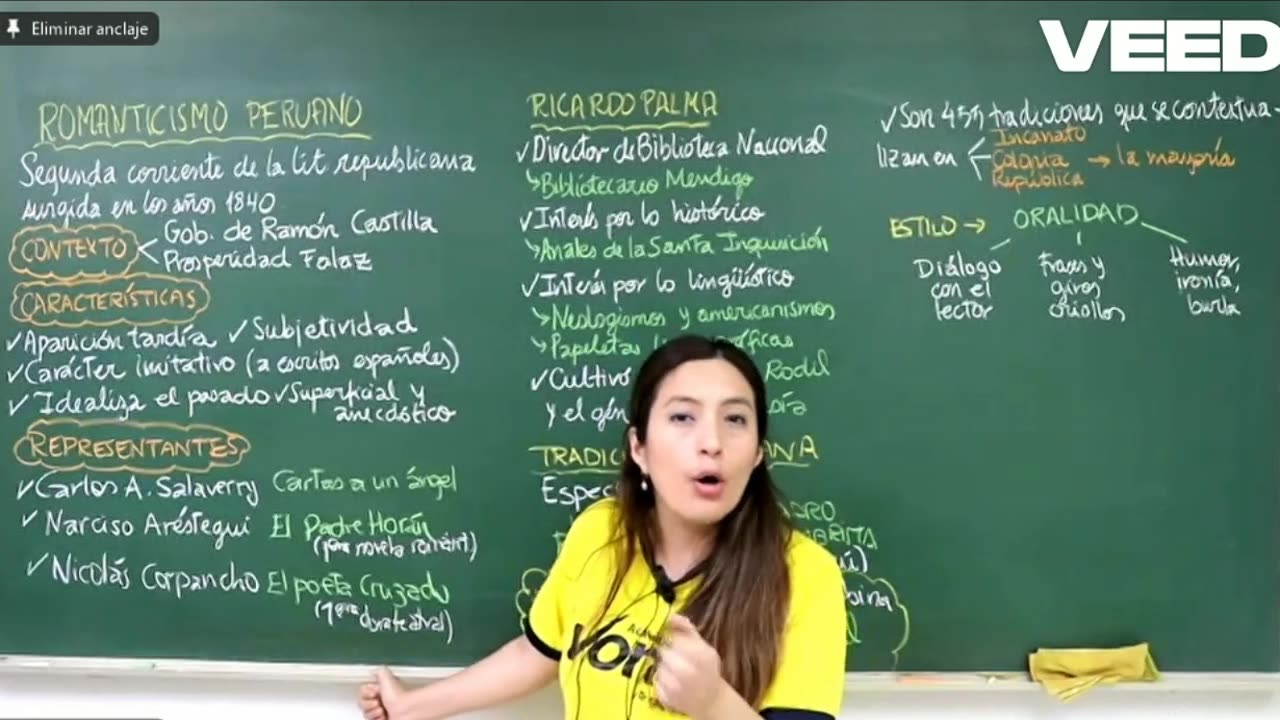 Eliminar anclaje
VEED
ROMANTICISMO PERUANO
Segunda corriente de la lit republicana
surgida en los años 1840
CONTEXTO
Gob. de Ramón Castilla
Prosperidad Falaz
CARACTERÍSTICAS
✓Aparición tardía ✓Subjetividad
✓Carácter imitativo (a escritos españoles)
✓Idealiza el pasado ✓Superficial y
anecdótico
REPRESENTANTES
✓Carlos A. Salaverry Cartas a un ángel
✓Narciso Aréstegui El Padre Horán
(1era novela románt.)
✓Nicolás Corpancho El poeta Cruzado
(1era obra teatral)
RICARDO PALMA
✓Director de Biblioteca Nacional
↳Bibliotecario Mendigo
✓Interés por lo histórico
↳Anales de la Santa Inquisición
✓Interés por lo lingüístico
↳Neologismos y americanismos
↳Papeletas
✓Cultivó Rodil
y el
✓Son 453 tradiciones que se contextua-
lizan en
Incanato
Colonia → la mayoría
República
ESTILO → ORALIDAD
Diálogo
con el
lector
Frases y
giros
criollos
Humor,
ironía,
burla